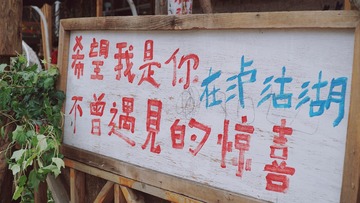 希望我是你在泸沽湖
不曾遇見的惊喜